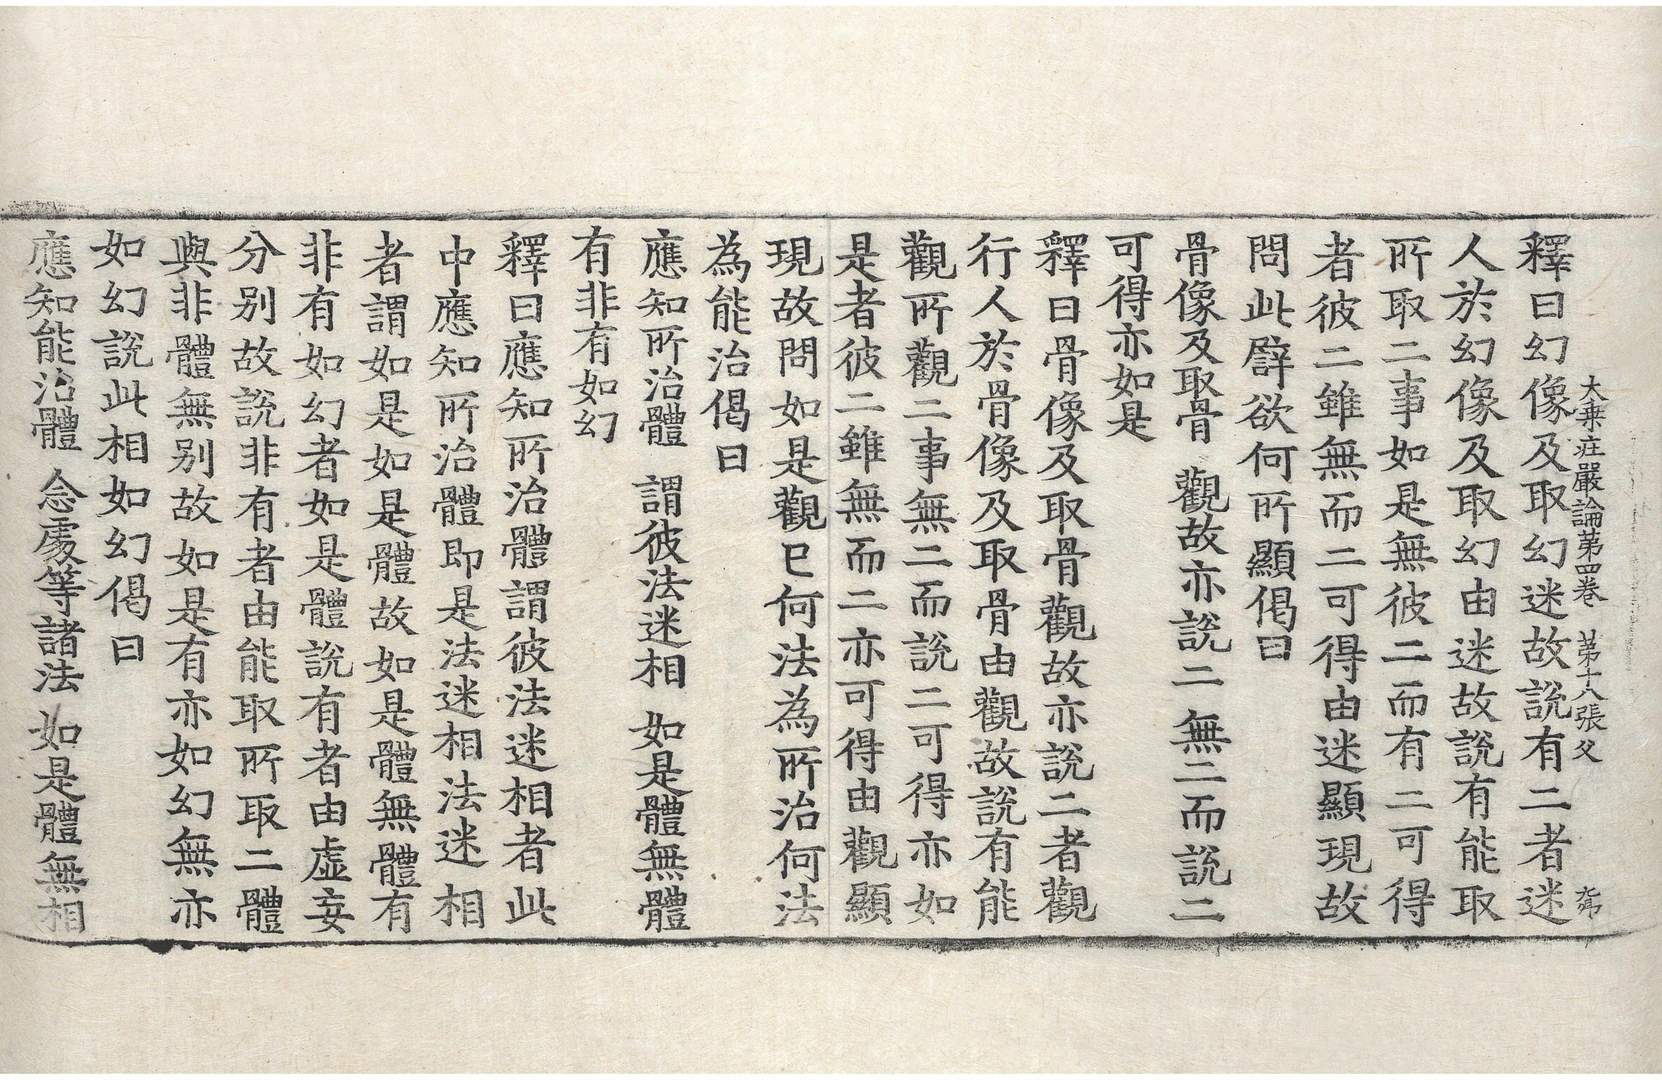 大乗庄嚴論第四巻　第十八張　父
釋曰幻像及取幻迷故說有二者迷
人於幻像及取幻由迷故說有能取
所取二事如是無彼二而有二可得
者彼二雖無而二可得由迷顯現故
問此譬欲何所顯偈曰
骨像及取骨　觀故亦說二　無二而說二
可得亦如是
釋曰骨像及取骨觀故亦說二者觀
行人於骨像及取骨由觀故說有能
觀所觀二事無二而說二可得亦如
是者彼二雖無而二亦可得由觀顯
現故問如是觀已何法為所治何法
為能治偈曰
應知所治體　謂彼法迷相　如是體無體
有非有如幻
釋曰應知所治體謂彼法迷相者此
中應知所治體即是法迷相法迷相
者謂如是如是體故如是體無體有
非有如幻者如是體說有者由虛妄
分別故說非有者由能取所取二體
與非體無別故如是有亦如幻無亦
如幻說此相如幻偈曰
應知能治體　念處等諸法　如是體無相